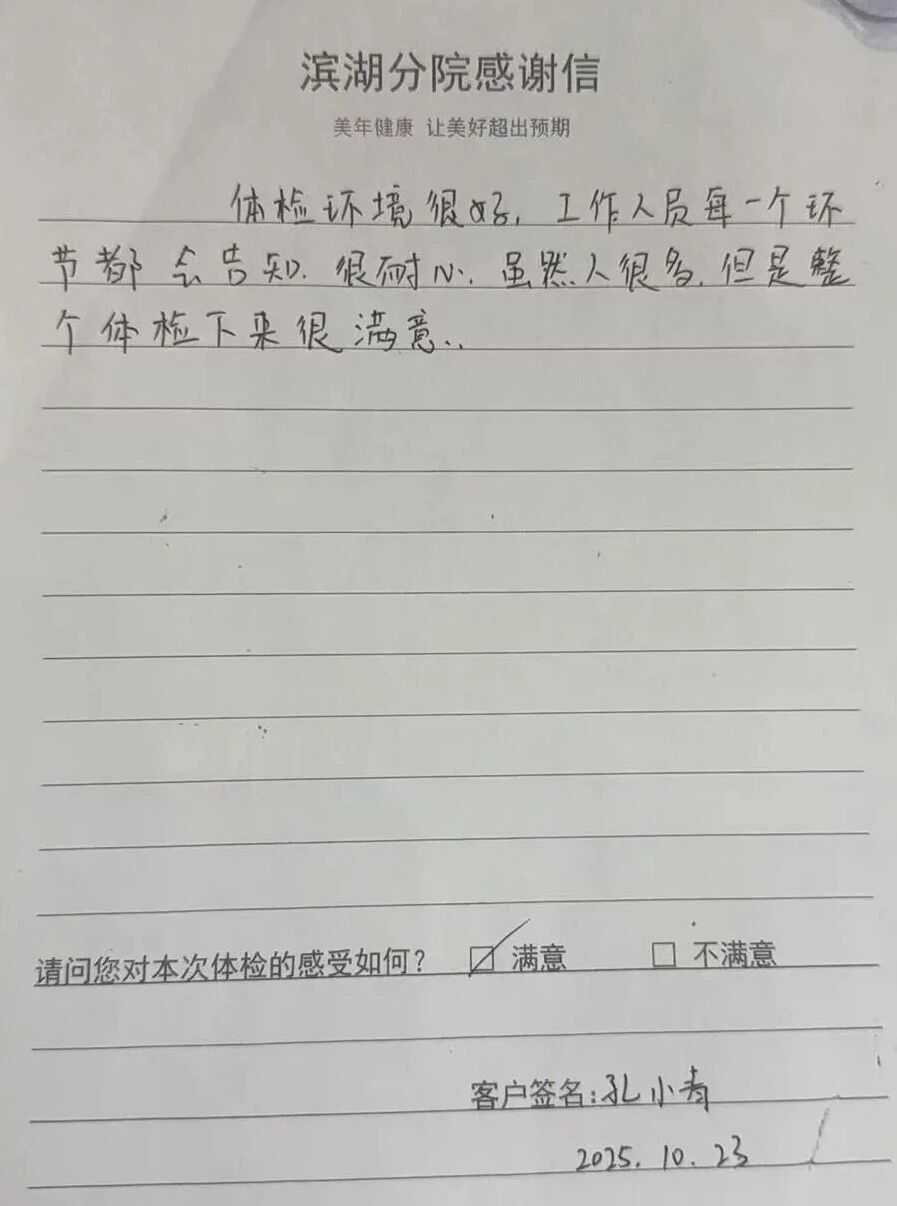 滨湖分院感谢信
美年健康 让美好超出预期
体检环境很好,工作人员每一个环
节都会告知.很耐心.虽然人很多.但是整
个体检下来很满意..
请问您对本次体检的感受如何? ☑ 满意 □ 不满意
客户签名:孔小青
2025.10.23